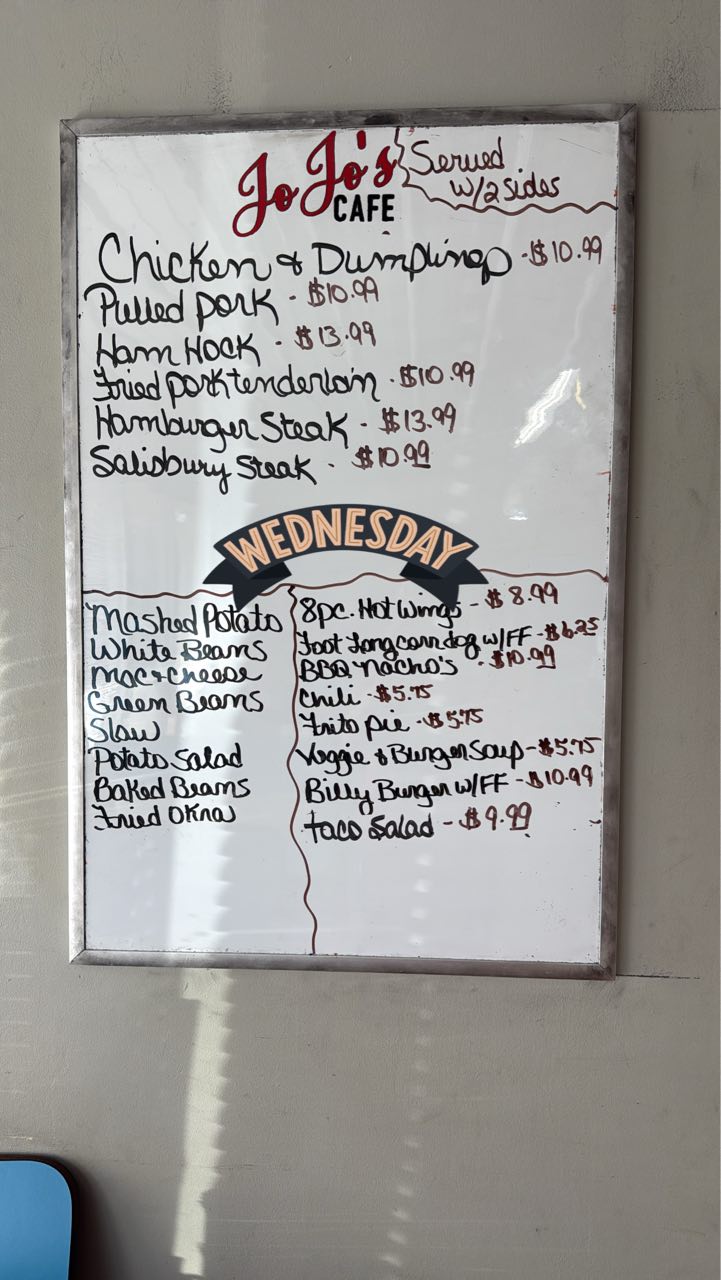 JoJo's
CAFE
Served
w/2 sides
Chicken & Dumplings - $10.99
Pulled pork - $10.99
Ham Hock - $13.99
Fried pork tenderloin - $10.99
Hamburger Steak - $13.99
Salisbury Steak - $10.99
WEDNESDAY
Mashed Potato
White Beans
Mac + cheese
Green Beans
Slaw
Potato Salad
Baked Beans
Fried Okra
8pc. Hot Wings - $8.99
Foot Long corn dog w/FF - $6.25
BBQ Nacho's - $10.99
Chili - $5.75
Frito pie - $5.75
Veggie & Burger Soup - $5.75
Billy Burger w/FF - $10.99
Taco Salad - $9.99